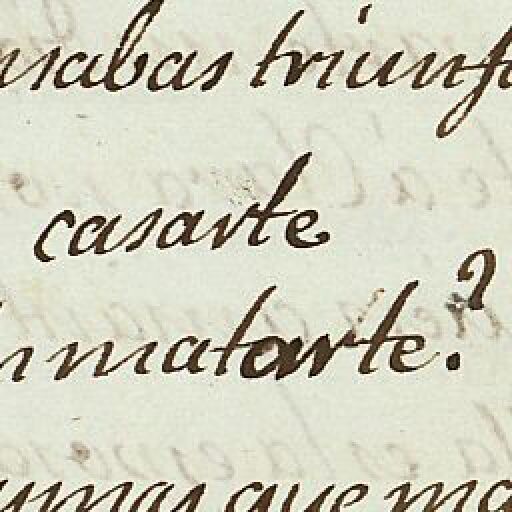 nsabas triunfa
casarte
n matarte.?
umas que ma